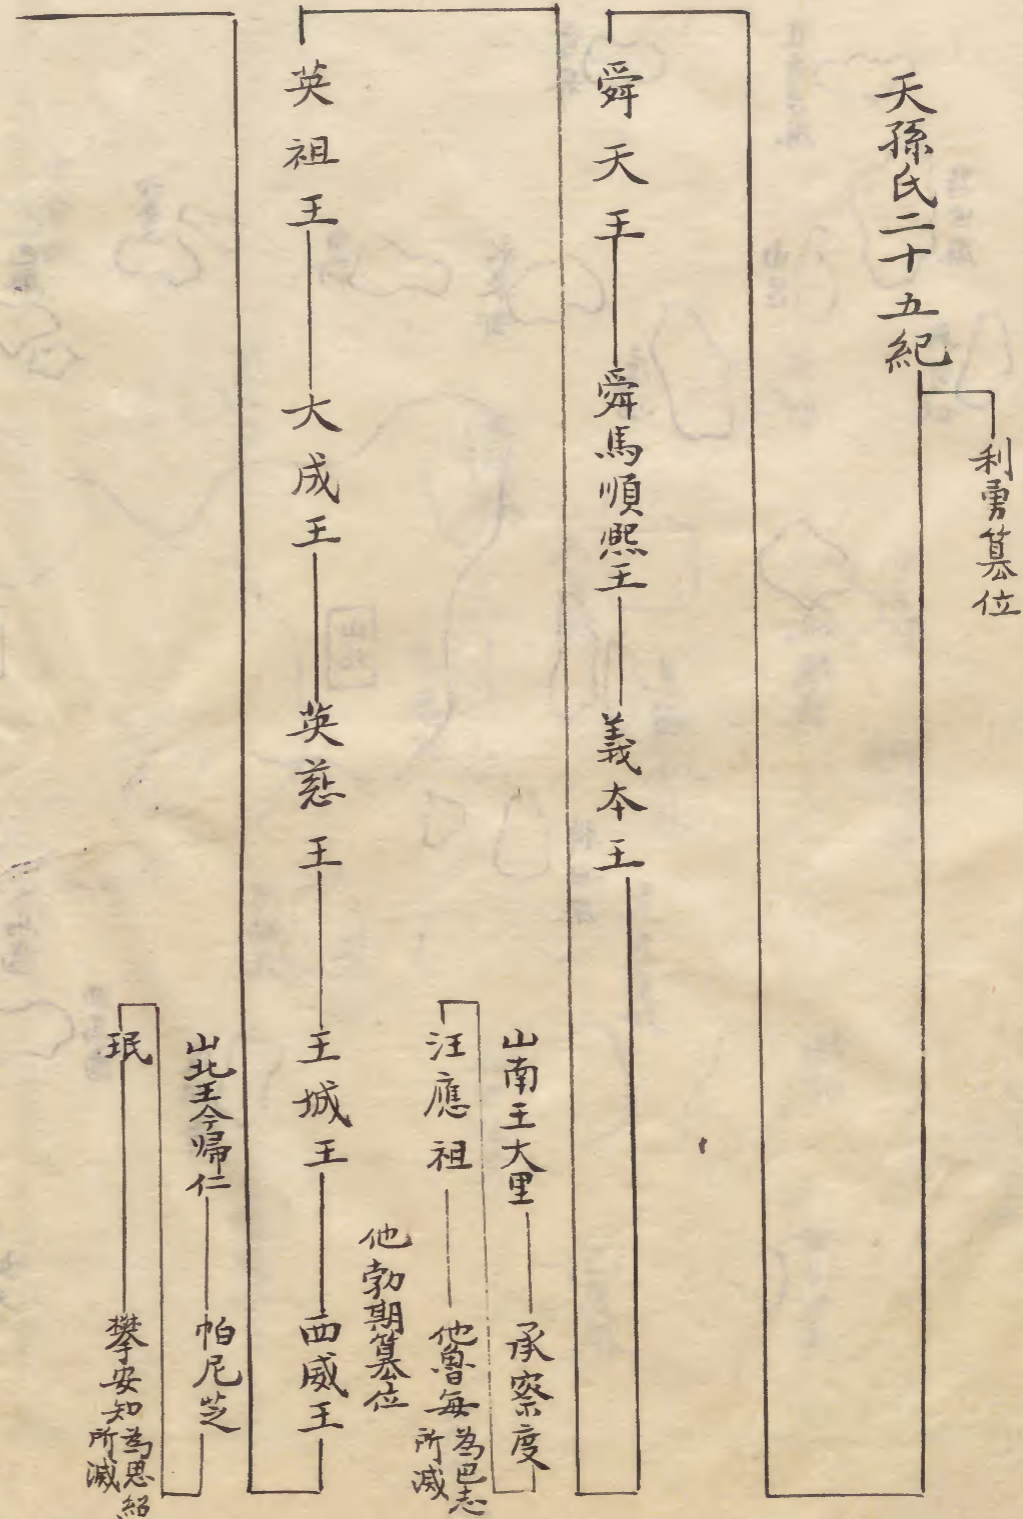 天孫氏二十五紀
利勇篡位
舜天王
舜馬順熙王
義本王
山南王大里
承察度
汪應祖
他魯每為巴志所滅
英祖王
大成王
英慈王
王城王
西威王
他勃期篡位
山北王今歸仁
帕尼芝
珉
攀安知為思紹所滅